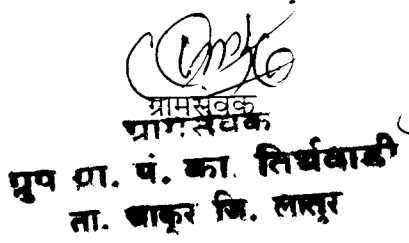 ग्रामसेवक
ग्रामसेवक
ग्रुप ग्रा. पं. का. तिर्थवाडी
ता. चाकूर जि. लातूर